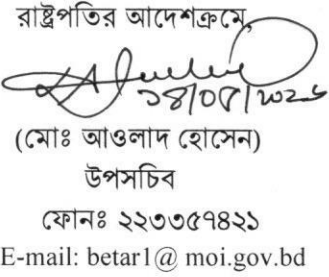 রাষ্ট্রপতির আদেশক্রমে,
১৪/০৫/২০২৬
(মোঃ আওলাদ হোসেন)
উপসচিব
ফোনঃ ২২৩৩৫৭৪২১
E-mail: betar1@ moi.gov.bd